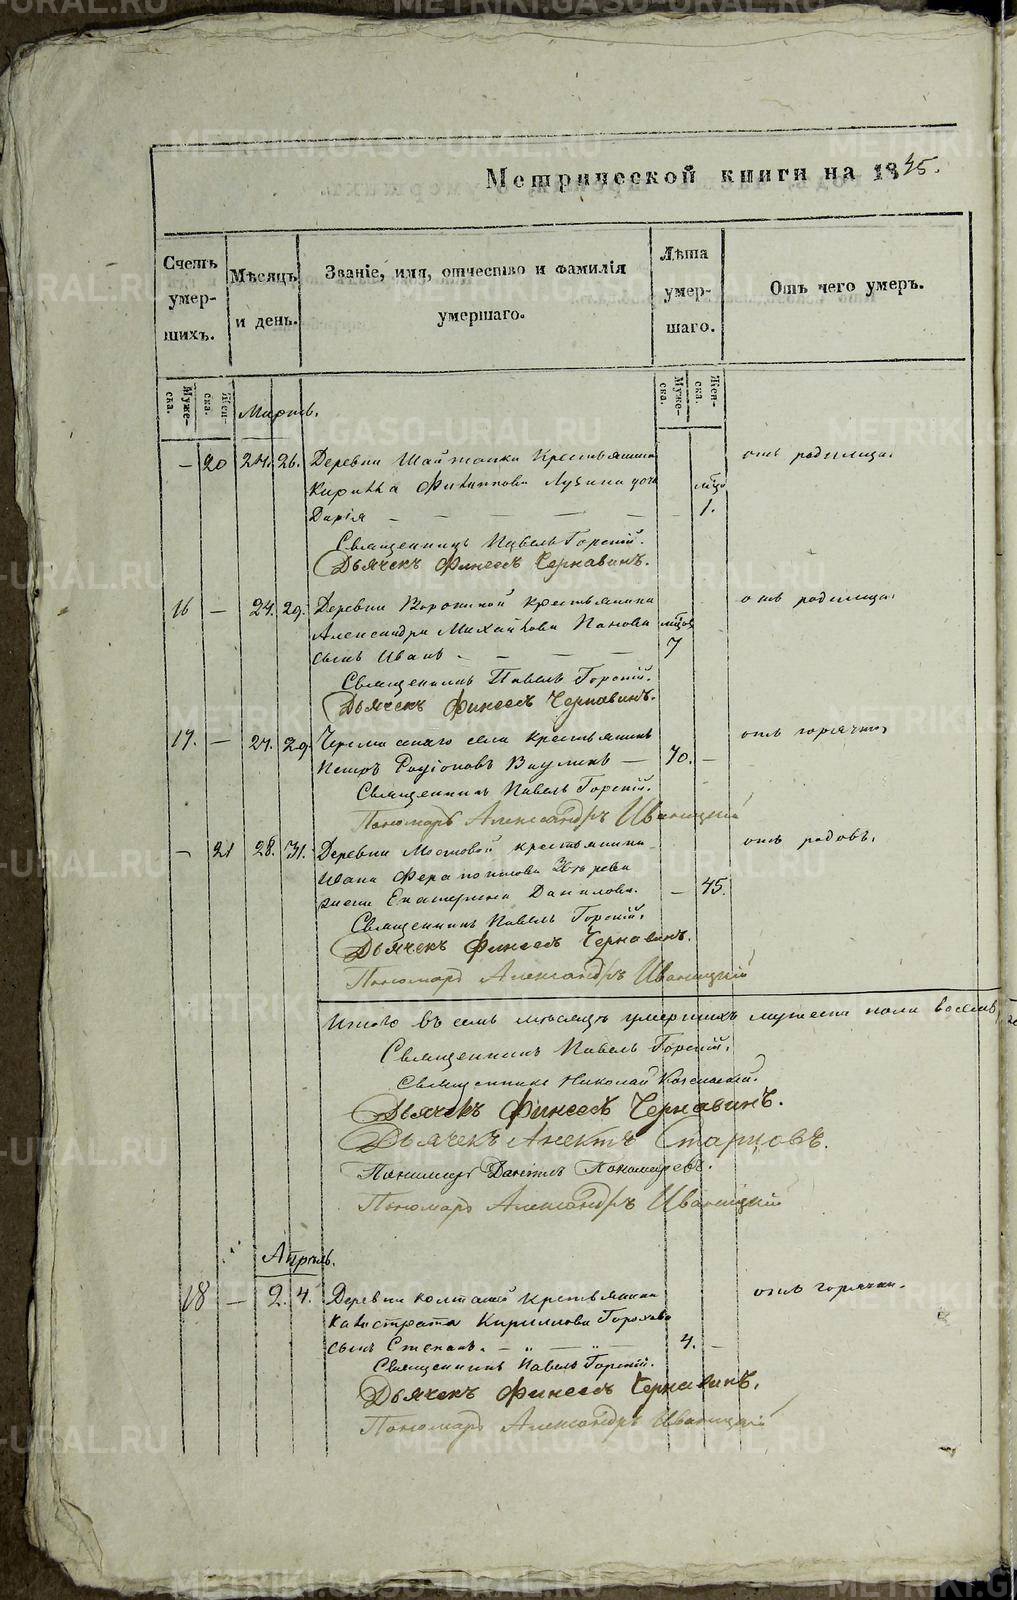 Метрической книги на 1845.
Счетъ умер- шихъ.
Мѣсяцъ и день.
Званіе, имя, отчество и фамилія умершаго.
Лѣта умер- шаго.
Отъ чего умеръ.
Муже- ска.
Жен- ска.
Муже- ска.
Жен- ска.
Мартъ.
— 20 24. 26. Деревни Шайтанки Крестьянина отъ родимца.
Кирилла Филиппова Лузина дочь
Дарія — — — — — 1.
Священникъ Павелъ Горскій.
Дьячекъ Финеесъ Чернавинъ.
16 — 24. 29. Деревни Ворониной крестьянина отъ родимца.
Александра Михайлова Панова
сынъ Иванъ — — — — 7
Священникъ Павелъ Горскій.
Дьячекъ Финеесъ Чернавинъ.
17. — 27. 29. Черемисскаго села крестьянинъ отъ горячки,
Петръ Родіоновъ Ваулинъ — 70. —
Священникъ Павелъ Горскій.
Пономарь Александръ Иваницкій
— 21 28. 31. Деревни Мостовой крестьянина отъ родовъ.
Ивана Ферапонтова
жена Екатерина Данилова. — 45.
Священникъ Павелъ Горскій.
Дьячекъ Финеесъ Чернавинъ.
Пономарь Александръ Иваницкій
Итого въ семъ мѣсяцѣ умершихъ мужеска пола восемь,
Священникъ Павелъ Горскій.
Священникъ Николай
Дьячекъ Финеесъ Чернавинъ.
Дьячекъ Старцовъ.
Пономарь Даніилъ Пономаревъ.
Пономарь Александръ Иваницкій
Апрѣль.
18 — 2. 4. Деревни Колташей Крестьянина отъ горячки.
Калистрата Кириллова Горохова
сынъ Степанъ. — „ — „ — 4. —
Священникъ Павелъ Горскій.
Дьячекъ Финеесъ Чернавинъ.
Пономарь Александръ Иваницкій
METRIKI.GASO-URAL.RU